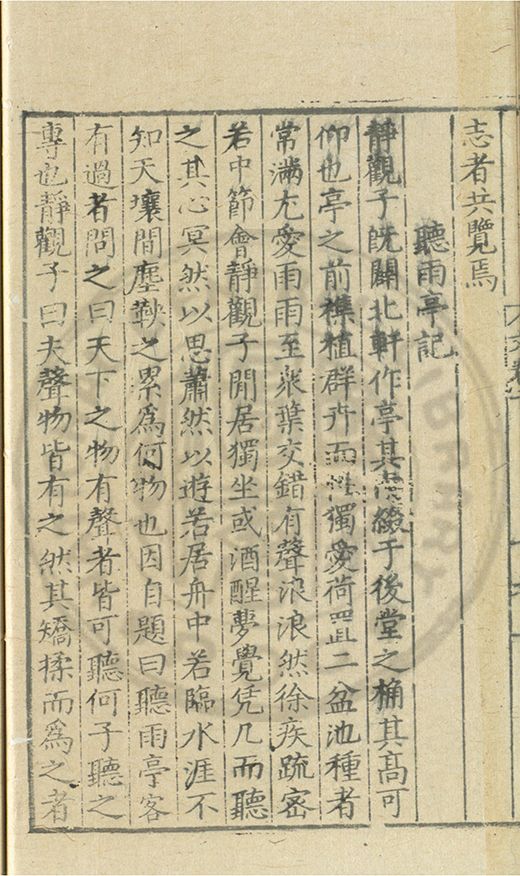 志者共覽焉
聽雨亭記
靜觀子旣闢北軒作亭其綴于後堂之桷其髙可
仰也亭之前雜植群卉而性獨愛荷置二盆池種者
常滿尤愛雨雨至衆葉交錯有聲浪浪然徐疾疏密
若中節會靜觀子閒居獨坐或酒醒夢覺凭几而聽
之其心冥然以思蕭然以遊若居舟中若臨水涯不
知天壤間塵鞅之累爲何物也因自題曰聽雨亭客
有過者問之曰天下之物有聲者皆可聽何子聽之
專也靜觀子曰夫聲物皆有之然其矯揉而爲之者